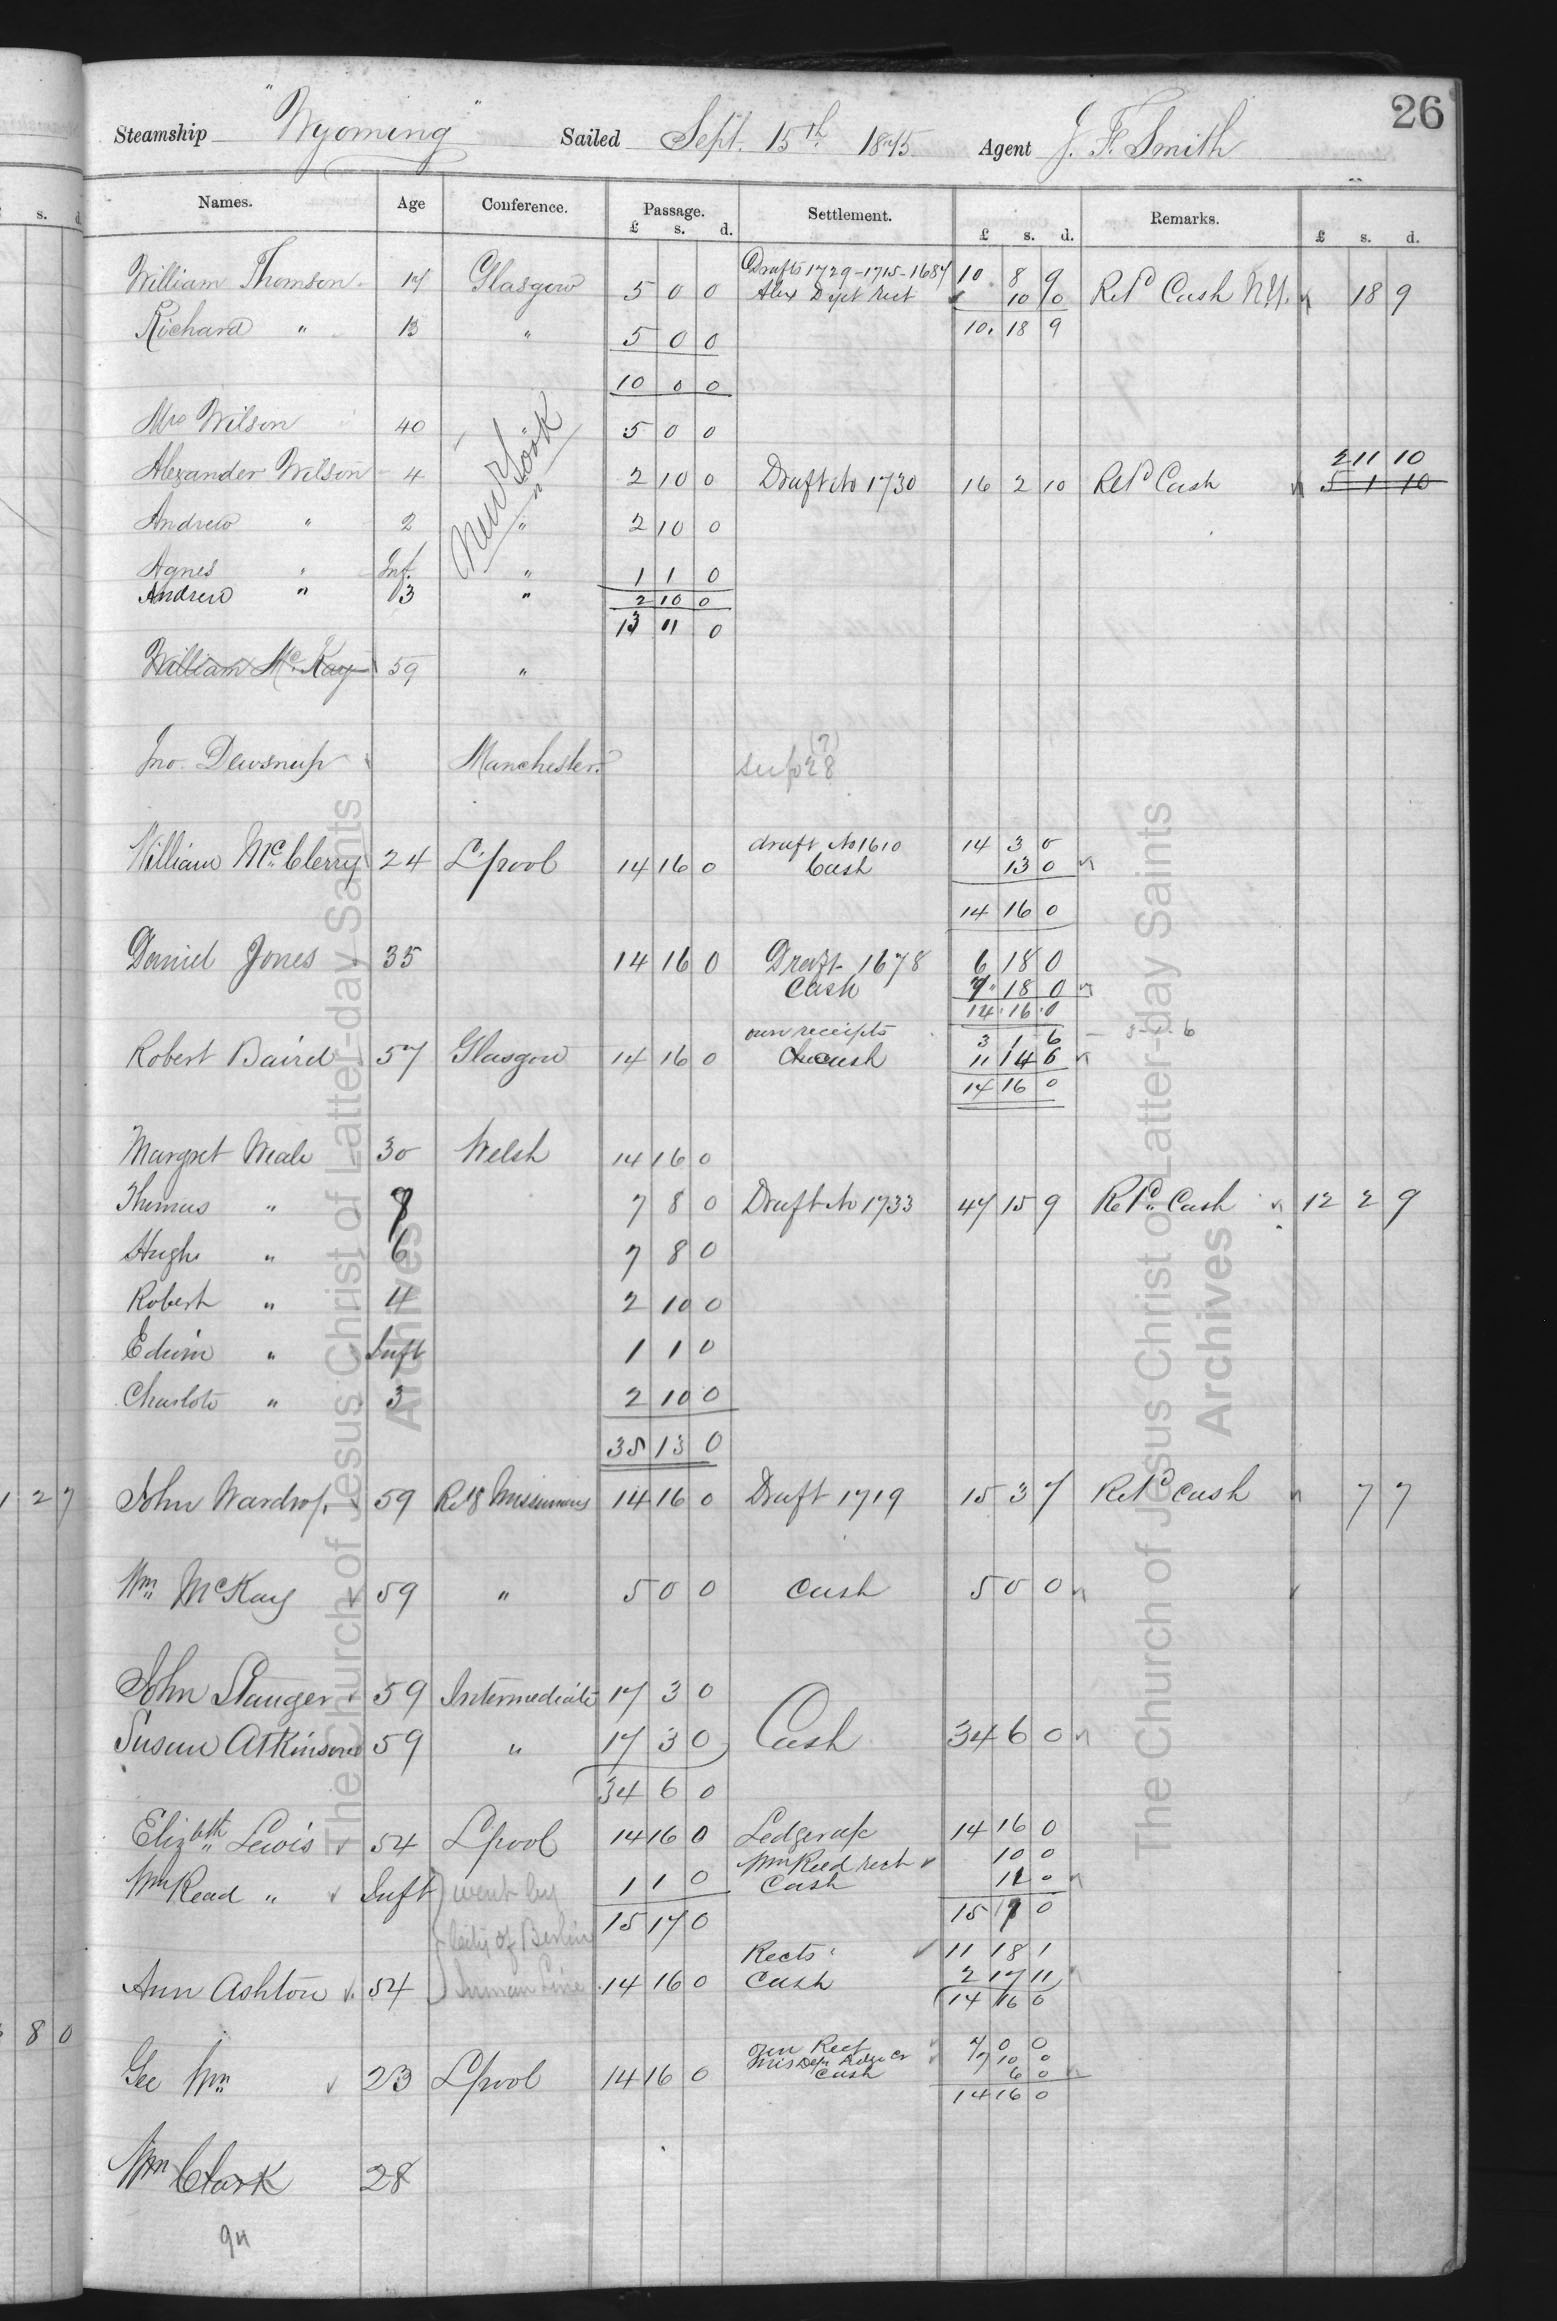 26
Steamship "Wyoming" Sailed Sept. 15th 1875 Agent J. F. Smith
Names. Age Conference. Passage. Settlement. Remarks.
s. d. £ s. d. £ s. d. £ s. d.
Drafts 1729-1715-1687 10 8 9
William Thomson 17 Glasgow 5 0 0 Alex Dept Rect 10 0 Retd Cash N.Y. 18 9
Richard " 13 " 5 0 0 10 18 9
10 0 0
Mrs Wilson 40 " 5 0 0
New York
2 11 10
Alexander Wilson 4 " 2 10 0 Draft No 1730 16 2 10 Retd Cash 5 1 10
Andrew " 2 " 2 10 0
Agnes " Inf. " 1 1 0
Andrew " 3 " 2 10 0
13 11 0
William McKay 59 "
Jno. Dewsnup Manchester. sup 28 (?)
draft No 1610 14 3 0
William McClerry 24 L'pool 14 16 0 Cash 13 0
14 16 0
Daniel Jones 35 14 16 0 Draft 1678 6 18 0
Cash 7 18 0
14 16 0
own receipts 3 1 6
Robert Baird 57 Glasgow 14 16 0 cash 11 14 6
14 16 0
Margret Neale 30 Welsh 14 16 0
Thomas " 8 7 8 0 Draft No 1733 47 15 9 Retd. Cash 12 2 9
Hugh " 6 7 8 0
Robert " 4 2 10 0
Edwin " Inft 1 1 0
Charlote " 3 2 10 0
35 13 0
1 2 7 John Wardrop. 59 Retg Missionarys 14 16 0 Draft 1719 15 3 7 Retd cash 7 7
Wm McKay 59 " 5 0 0 Cash 5 0 0
John Stanger 59 Intermediate 17 3 0
Susan Atkinson 59 " 17 3 0 Cash 34 6 0
34 6 0
Elizbth Lewis 54 L'pool 14 16 0 Ledger a/c 14 16 0
Wm Reed rect 10 0
Wm Read " Inft went by 1 1 0 Cash 11 0
City of Berlin 15 17 0 15 17 0
Rects 11 18 1
Ann Ashton 54 Inman Line 14 16 0 Cash 2 17 11
14 16 0
8 0
own Rect 7 0 0
7 10 0
Gee Wm 23 L'pool 14 16 0 Cash 6 0
14 16 0
Wm Clark 28
The Church of Jesus Christ of Latter-day Saints
Archives
The Church of Jesus Christ of Latter-day Saints
Archives